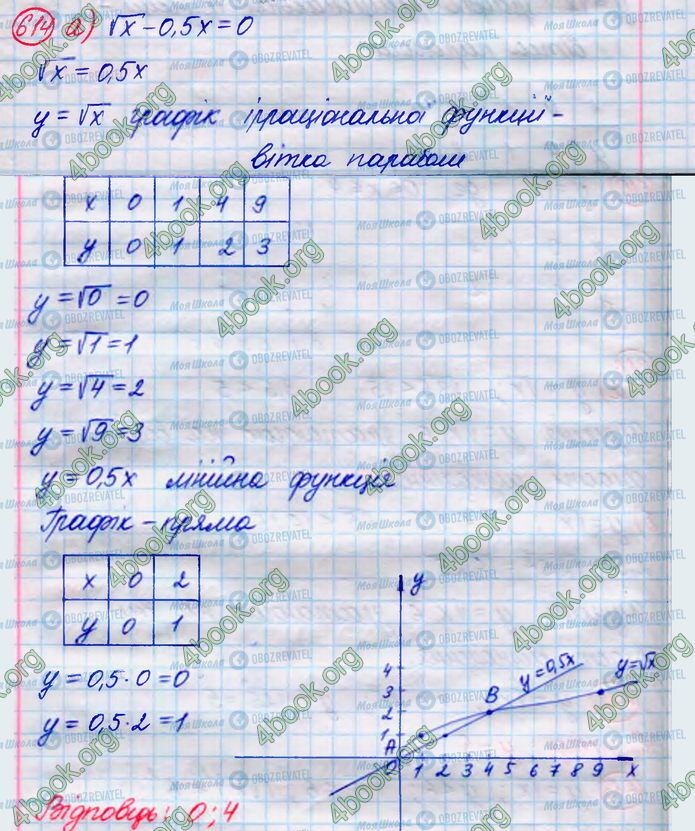 614 а) √x - 0,5x = 0
√x = 0,5x
y = √x графік ірраціональної функції -
вітка параболи
x 0 1 4 9
y 0 1 2 3
y = √0 = 0
y = √1 = 1
y = √4 = 2
y = √9 = 3
y = 0,5x лінійна функція
Графік - пряма
x 0 2
y 0 1
y = 0,5·0 = 0
y = 0,5·2 = 1
y
4
3
2
1
A
B
y=0,5x
y=√x
0 1 2 3 4 5 6 7 8 9 x
Відповідь: 0; 4
4book.org
МояШкола
OBOZREVATEL